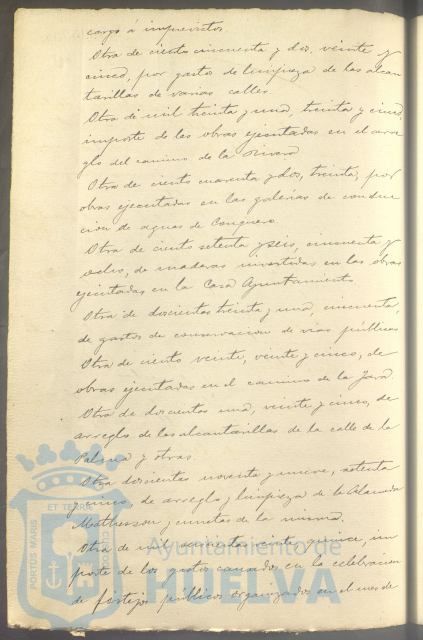 cargo á imprevistos.
Otra de ciento cincuenta y dos, veinte y
cinco, por gastos de limpieza de las alcan
tarillas de varias calles.
Otra de mil treinta y una, treinta y cinco,
importe de las obras ejecutadas en el arre
glo del camino de la Rivera
Otra de ciento cuarenta y dos, treinta, por
obras ejecutadas en las galerias de conduc
cion de aguas de Conquero.
Otra de ciento setenta y seis, cincuenta y
ocho, de maderas invertidas en las obras
ejecutadas en la Casa Ayuntamiento
Otra de doscientas treinta y una, cincuenta,
de gastos de conservacion de vias públicas
Otra de ciento veinte, veinte y cinco, de
obras ejecutadas en el camino de la Jara
Otra de doscientas una, veinte y cinco, de
arreglo de las alcantarillas de la calle de la
Palma y otras
Otra doscientas noventa y nueve, setenta
y cinco, de arreglo y limpieza de la Alameda
Matheson y cunetas de la misma.
Otra de mil quince, im
porte de los gastos causados en la celebracion
de festejos públicos organizados en el mes de
PORTUS MARIS ET TERRAE CUSTODIA
Ayuntamiento de
HUELVA